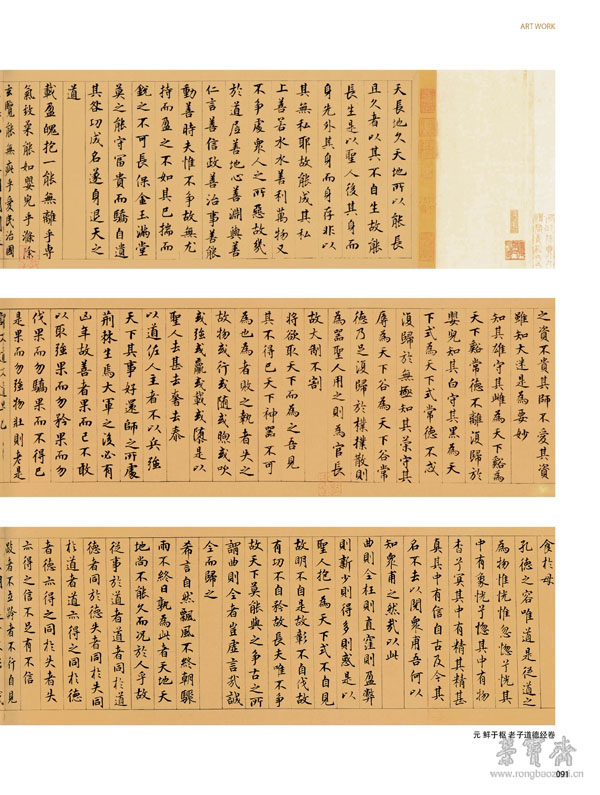 ART WORK
天長地久天地所以能長
且久者以其不自生故能
長生是以聖人後其身而
身先外其身而身存非以
其無私耶故能成其私
上善若水水善利萬物又
不爭處眾人之所惡故幾
於道居善地心善淵與善
仁言善信政善治事善能
動善時夫惟不爭故無尤
持而盈之不如其已揣而
銳之不可長保金玉滿堂
莫之能守富貴而驕自遺
其咎功成名遂身退天之
道
載盈魄抱一能無離乎專
氣致柔能如嬰兒乎滌除
玄覽能無疵乎愛民治國
之資不貴其師不愛其資
雖知大迷是為要妙
知其雄守其雌為天下谿為
天下谿常德不離復歸於
嬰兒知其白守其黑為天
下式為天下式常德不忒
復歸於無極知其榮守其
辱為天下谷為天下谷常
德乃足復歸於樸樸散則
為器聖人用之則為官長
故大制不割
將欲取天下而為之吾見
其不得已天下神器不可
為也為者敗之執者失之
故物或行或隨或呴或吹
或強或羸或載或隳是以
聖人去甚去奢去泰
以道佐人主者不以兵強
天下其事好還師之所處
荊棘生焉大軍之後必有
凶年故善者果而已不敢
以取強果而勿矜果而勿
伐果而勿驕果而不得已
是果而勿強物壯則老是
食於母
孔德之容唯道是從道之
為物惟恍惟忽惚兮恍其
中有象恍兮惚其中有物
杳兮冥其中有精其精甚
真其中有信自古及今其
名不去以閱眾甫吾何以
知眾甫之然哉以此
曲則全枉則直窪則盈弊
則新少則得多則惑是以
聖人抱一為天下式不自見
故明不自是故彰不自伐故
有功不自矜故長夫唯不爭
故天下莫能與之爭古之所
謂曲則全者豈虛言哉誠
全而歸之
希言自然飄風不終朝驟
雨不終日孰為此者天地天
地尚不能久而況於人乎故
從事於道者道者同於道
德者同於德失者同於失同
於道者道亦得之同於德
者德亦得之同於失者失
亦得之信不足有不信
跂者不立跨者不行自見
元 鲜于枢 老子道德经卷
榮寶齋
www.rongbaozhai.cn
091